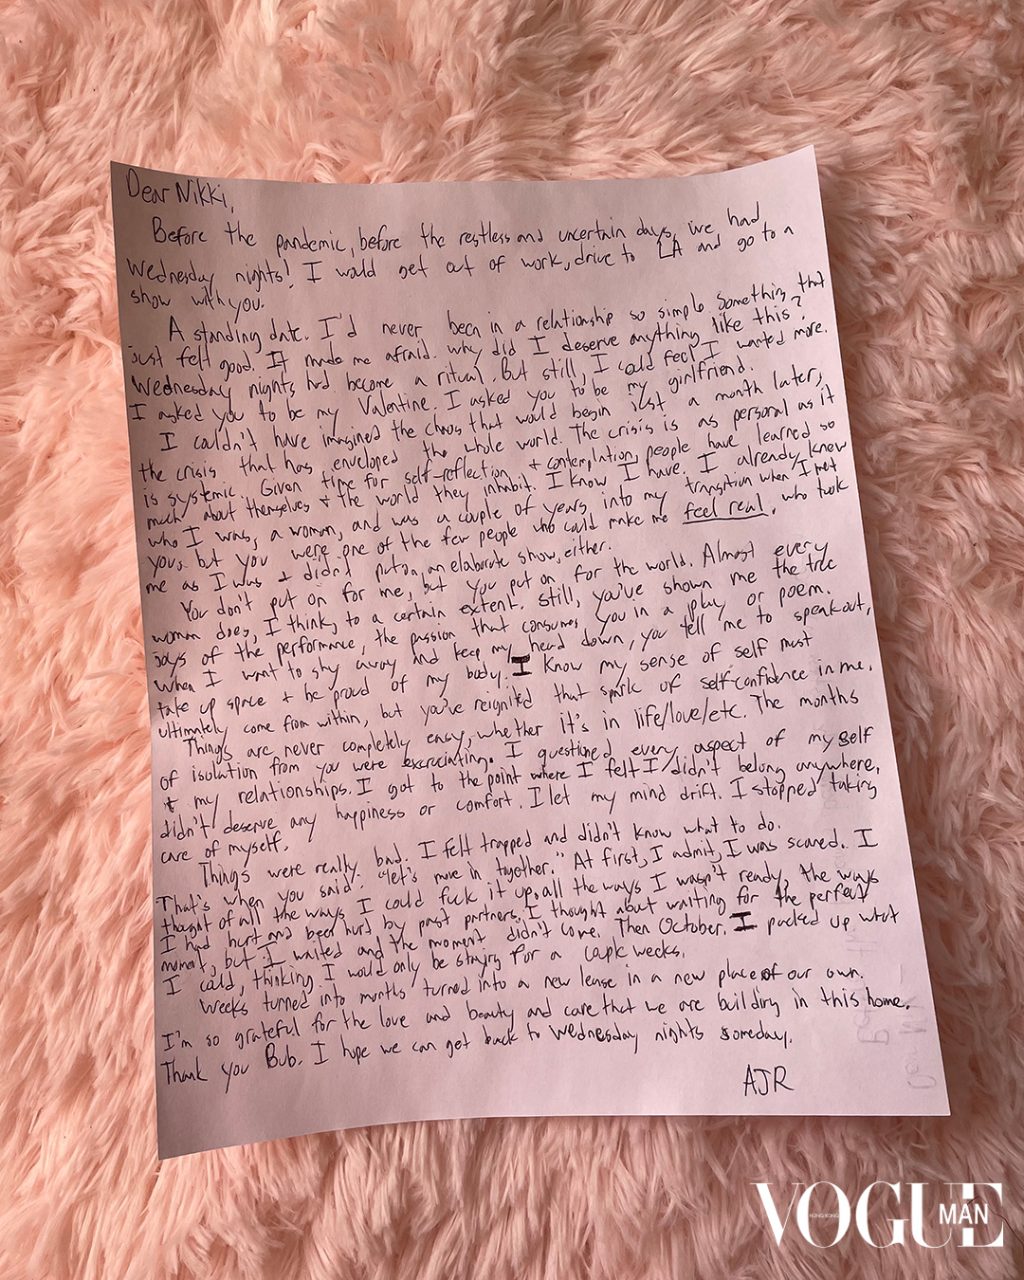 Dear Nikki,
Before the pandemic, before the restless and uncertain days, we had
Wednesday nights! I would get out of work, drive to LA and go to a
show with you.
A standing date. I'd never been in a relationship so simple something that
just felt good. It made me afraid. why did I deserve anything like this?
Wednesday nights had become a ritual. But still, I could feel I wanted more.
I asked you to be my Valentine. I asked you to be my girlfriend.
I couldn't have imagined the chaos that would begin just a month later,
the crisis that has enveloped the whole world. The crisis is as personal as it
is systemic. Given time for self-reflection, + contemplation, people have learned so
much about themselves + the world they inhabit. I know I have. I already knew
who I was, a woman, and was a couple of years into my transition when I met
you, but you were one of the few people who could make me feel real, who took
me as I was + didn't put on an elaborate show, either.
You don't put on for me, but you put on for the world. Almost every
woman does, I think, to a certain extent. Still, you've shown me the true
joys of the performance, the passion that consumes you in a play or poem.
When I want to shy away and keep my head down, you tell me to speak out,
take up space + be proud of my body. I know my sense of self must
ultimately come from within, but you've reignited that spark of self-confidence in me.
Things are never completely easy, whether it's in life/love/etc. The months
of isolation from you were excruciating. I questioned every aspect of myself
+ my relationships. I got to the point where I felt I didn't belong anywhere,
didn't deserve any happiness or comfort. I let my mind drift. I stopped taking
care of myself.
Things were really bad. I felt trapped and didn't know what to do.
That's when you said: "let's move in together." At first, I admit, I was scared. I
thought of all the ways I could fuck it up, all the ways I wasn't ready, the ways
I had hurt and been hurt by past partners. I thought about waiting for the perfect
moment, but I waited and the moment didn't come. Then October. I packed up what
I could, thinking I would only be staying for a couple weeks.
Weeks turned into months turned into a new lease in a new place of our own.
I'm so grateful for the love and beauty and care that we are building in this home.
Thank you Bub. I hope we can get back to Wednesday nights someday.
AJR
VOGUE
HONG KONG
MAN